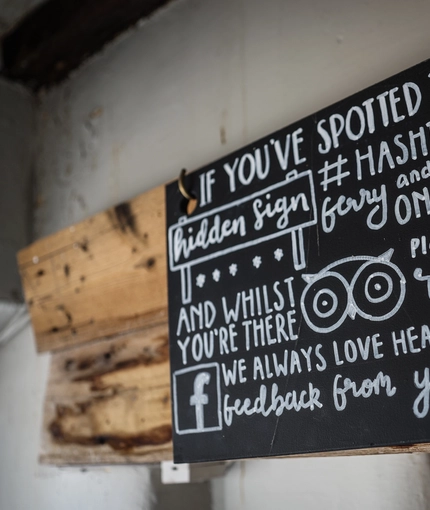 IF YOU'VE SPOTTED
hidden sign
#HASHT
Gerry and
ON
AND WHILST
YOU'RE THERE
f WE ALWAYS LOVE HEA
feedback from y